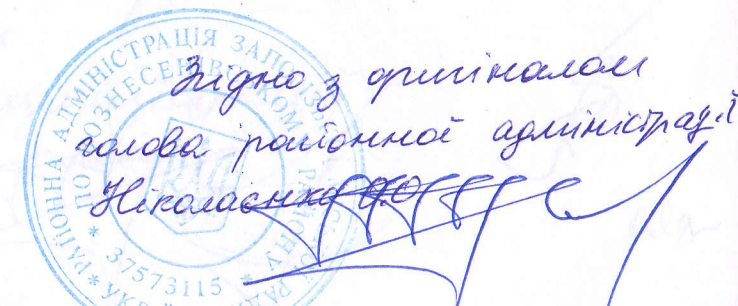 Згідно з оригіналом
голова районної адміністрації
Ніколаєнко О.О
РАЙОННА АДМІНІСТРАЦІЯ ЗАПОРІЗЬКОЇ
ПО ВОЗНЕСЕНІВСЬКОМУ РАЙОНУ
* 37573115 *